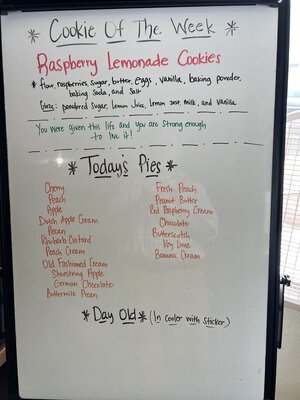 * Cookie Of The Week *
Raspberry Lemonade Cookies
* flour, raspberries, sugar, butter, eggs, vanilla, baking powder,
baking soda, and salt
Glaze: powdered sugar, Lemon Juice, Lemon zest, milk, and vanilla
You were given this life and you are strong enough
to live it!
* Today's Pies *
Cherry
Peach
Apple
Dutch Apple Cream
Pecan
Rhubarb Custard
Peach Cream
Old Fashioned Cream
Shoestring Apple
German Chocolate
Buttermilk Pecan
Fresh Peach
Peanut Butter
Red Raspberry Cream
Chocolate
Butterscotch
Key Lime
Banana Cream
* Day Old * (In Cooler with Sticker)